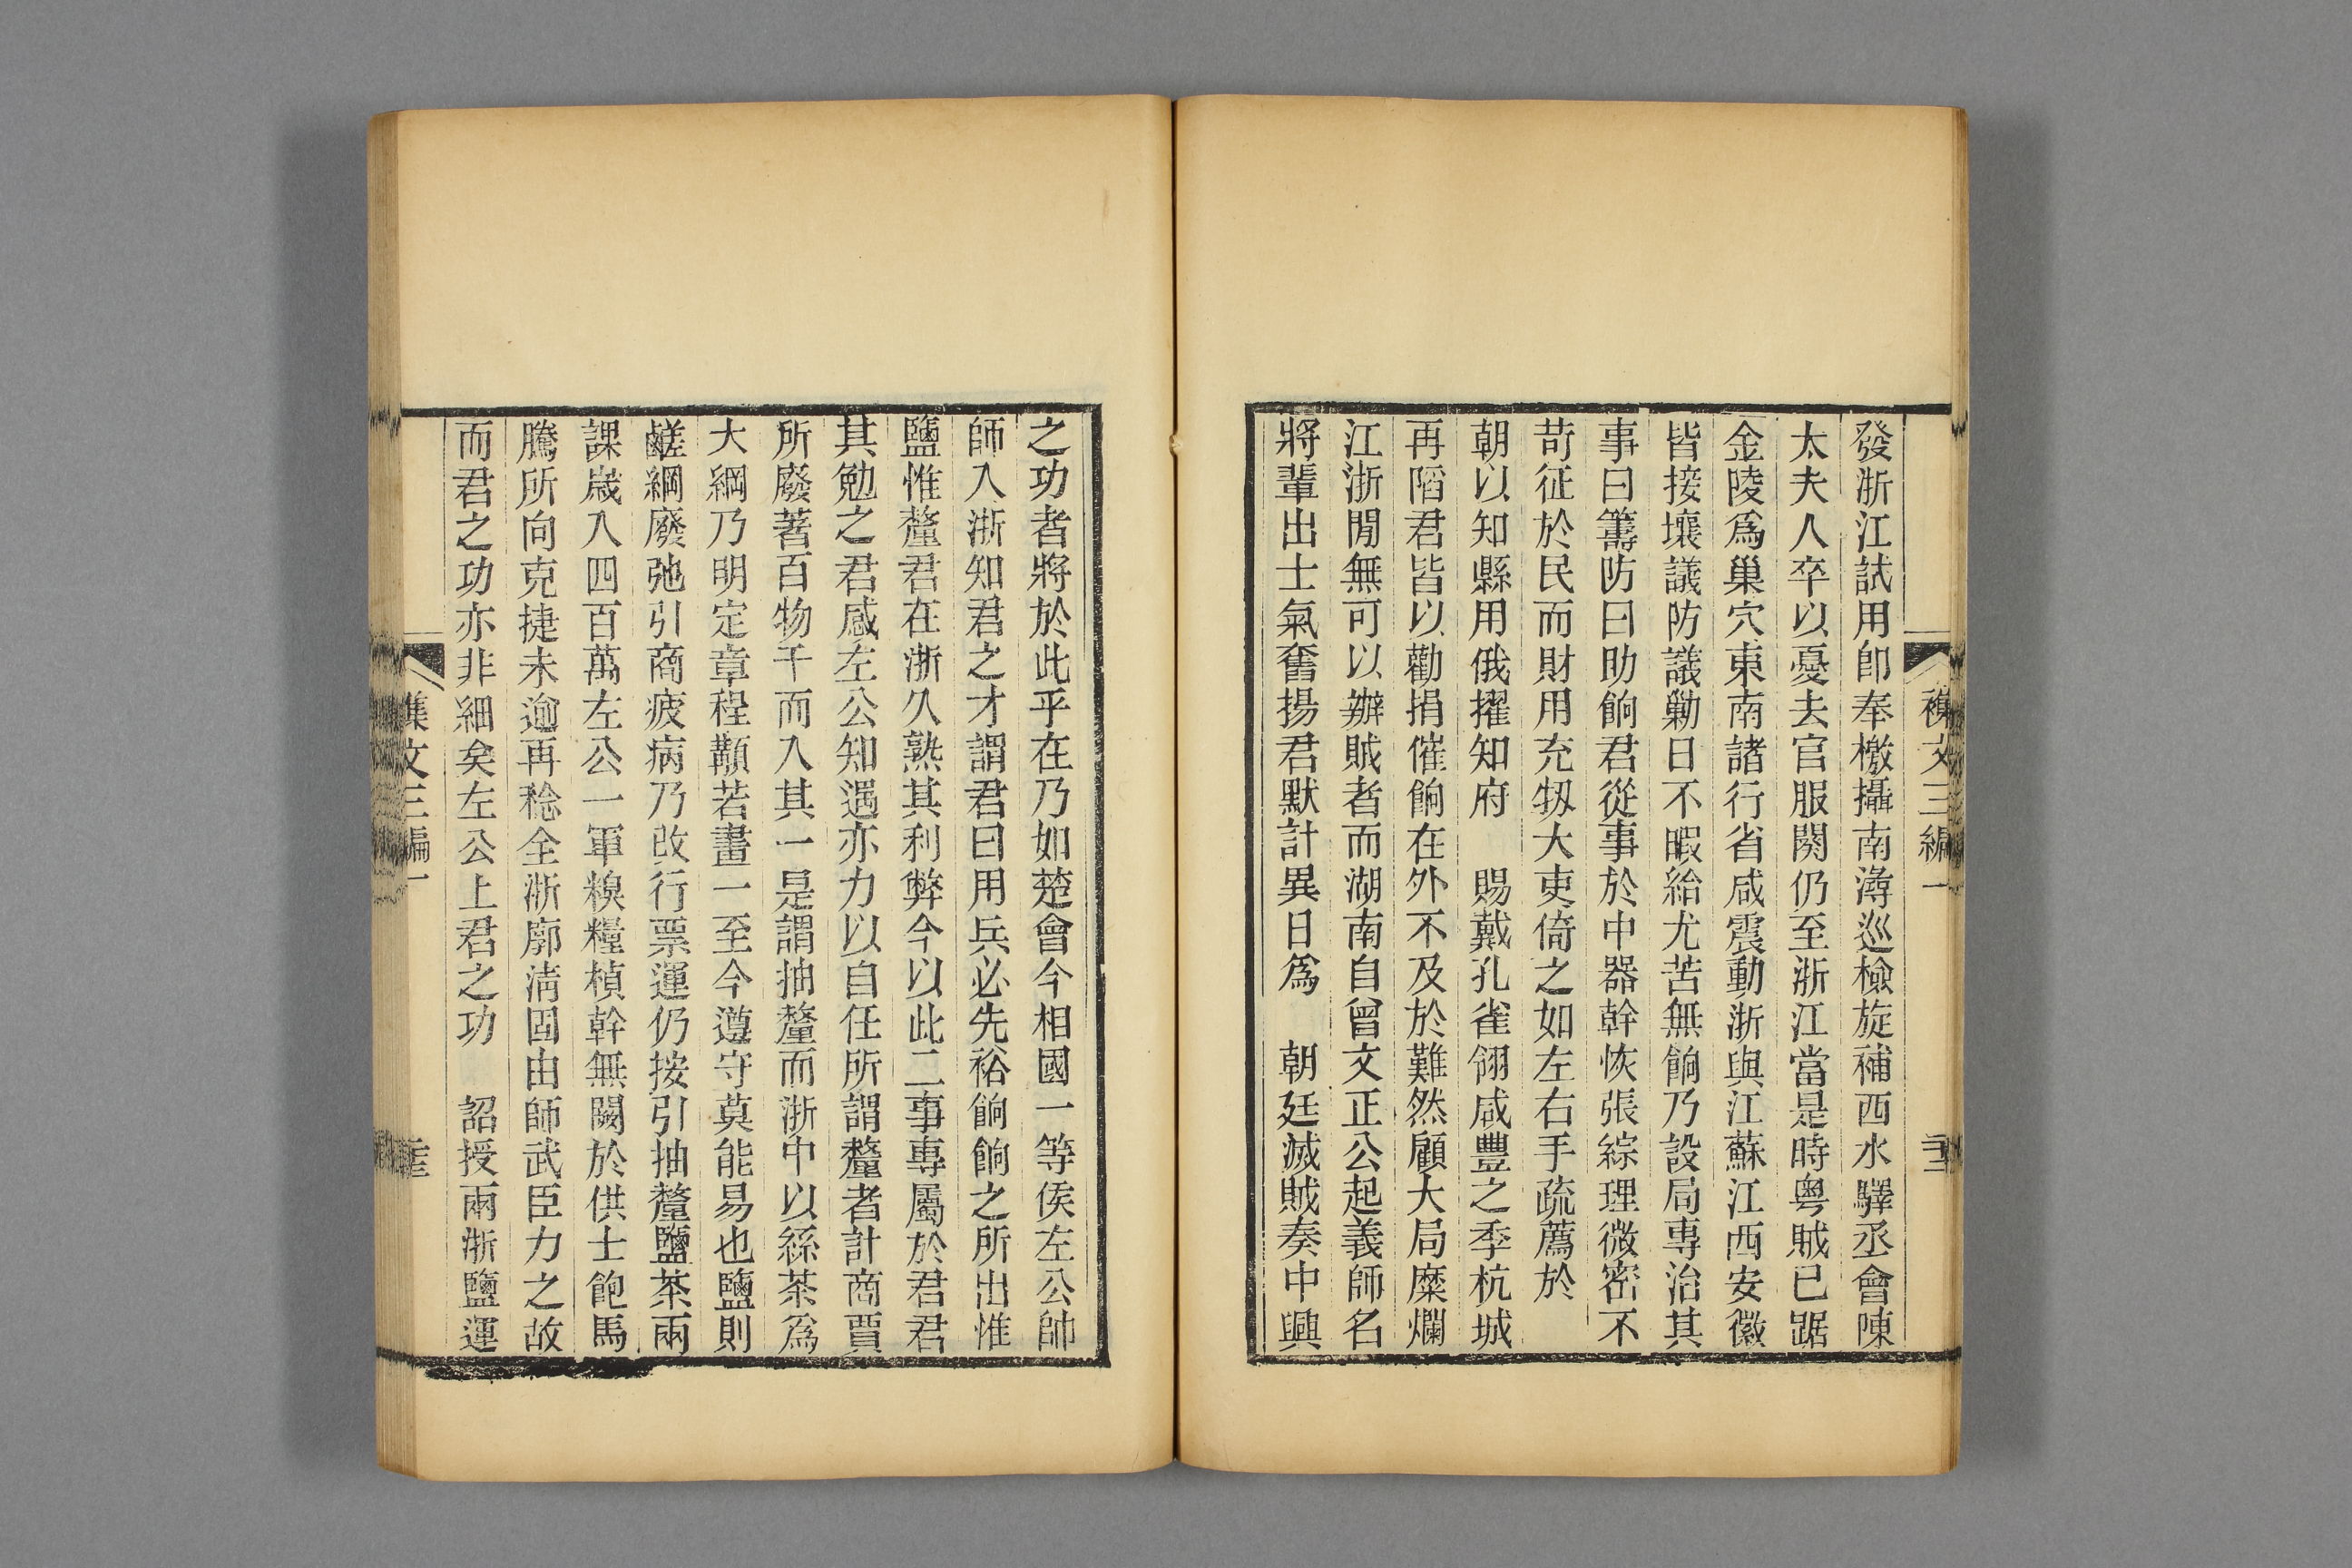 發浙江試用卽奉檄攝南潯巡檢旋補西水驛丞會陳
太夫人卒以憂去官服闋仍至浙江當是時粤賊已踞
金陵爲巢穴東南諸行省咸震動浙與江蘇江西安徽
皆接壤議防議勦日不暇給尤苦無餉乃設局專治其
事曰籌防曰助餉君從事於中器幹恢張綜理微密不
苛征於民而財用充牣大吏倚之如左右手疏薦於
朝以知縣用俄擢知府　賜戴孔雀翎咸豐之季杭城
再陷君皆以勸捐催餉在外不及於難然顧大局糜爛
江浙閒無可以辦賊者而湖南自曾文正公起義師名
將輩出士氣奮揚君默計異日爲　朝廷滅賊奏中興
之功者將於此乎在乃如楚會今相國一等侯左公帥
師入浙知君之才謂君曰用兵必先裕餉餉之所出惟
鹽惟釐君在浙久熟其利弊今以此二事專屬於君君
其勉之君感左公知遇亦力以自任所謂釐者計商賈
所廢著百物千而入其一是謂抽釐而浙中以絲茶爲
大綱乃明定章程顜若畫一至今遵守莫能易也鹽則
鹺綱廢弛引商疲病乃改行票運仍按引抽釐鹽茶兩
課歲入四百萬左公一軍糗糧楨幹無闕於供士飽馬
騰所向克捷未逾再稔全浙廓淸固由師武臣力之故
而君之功亦非細矣左公上君之功　詔授兩浙鹽運
襍文三編一
集文三編一